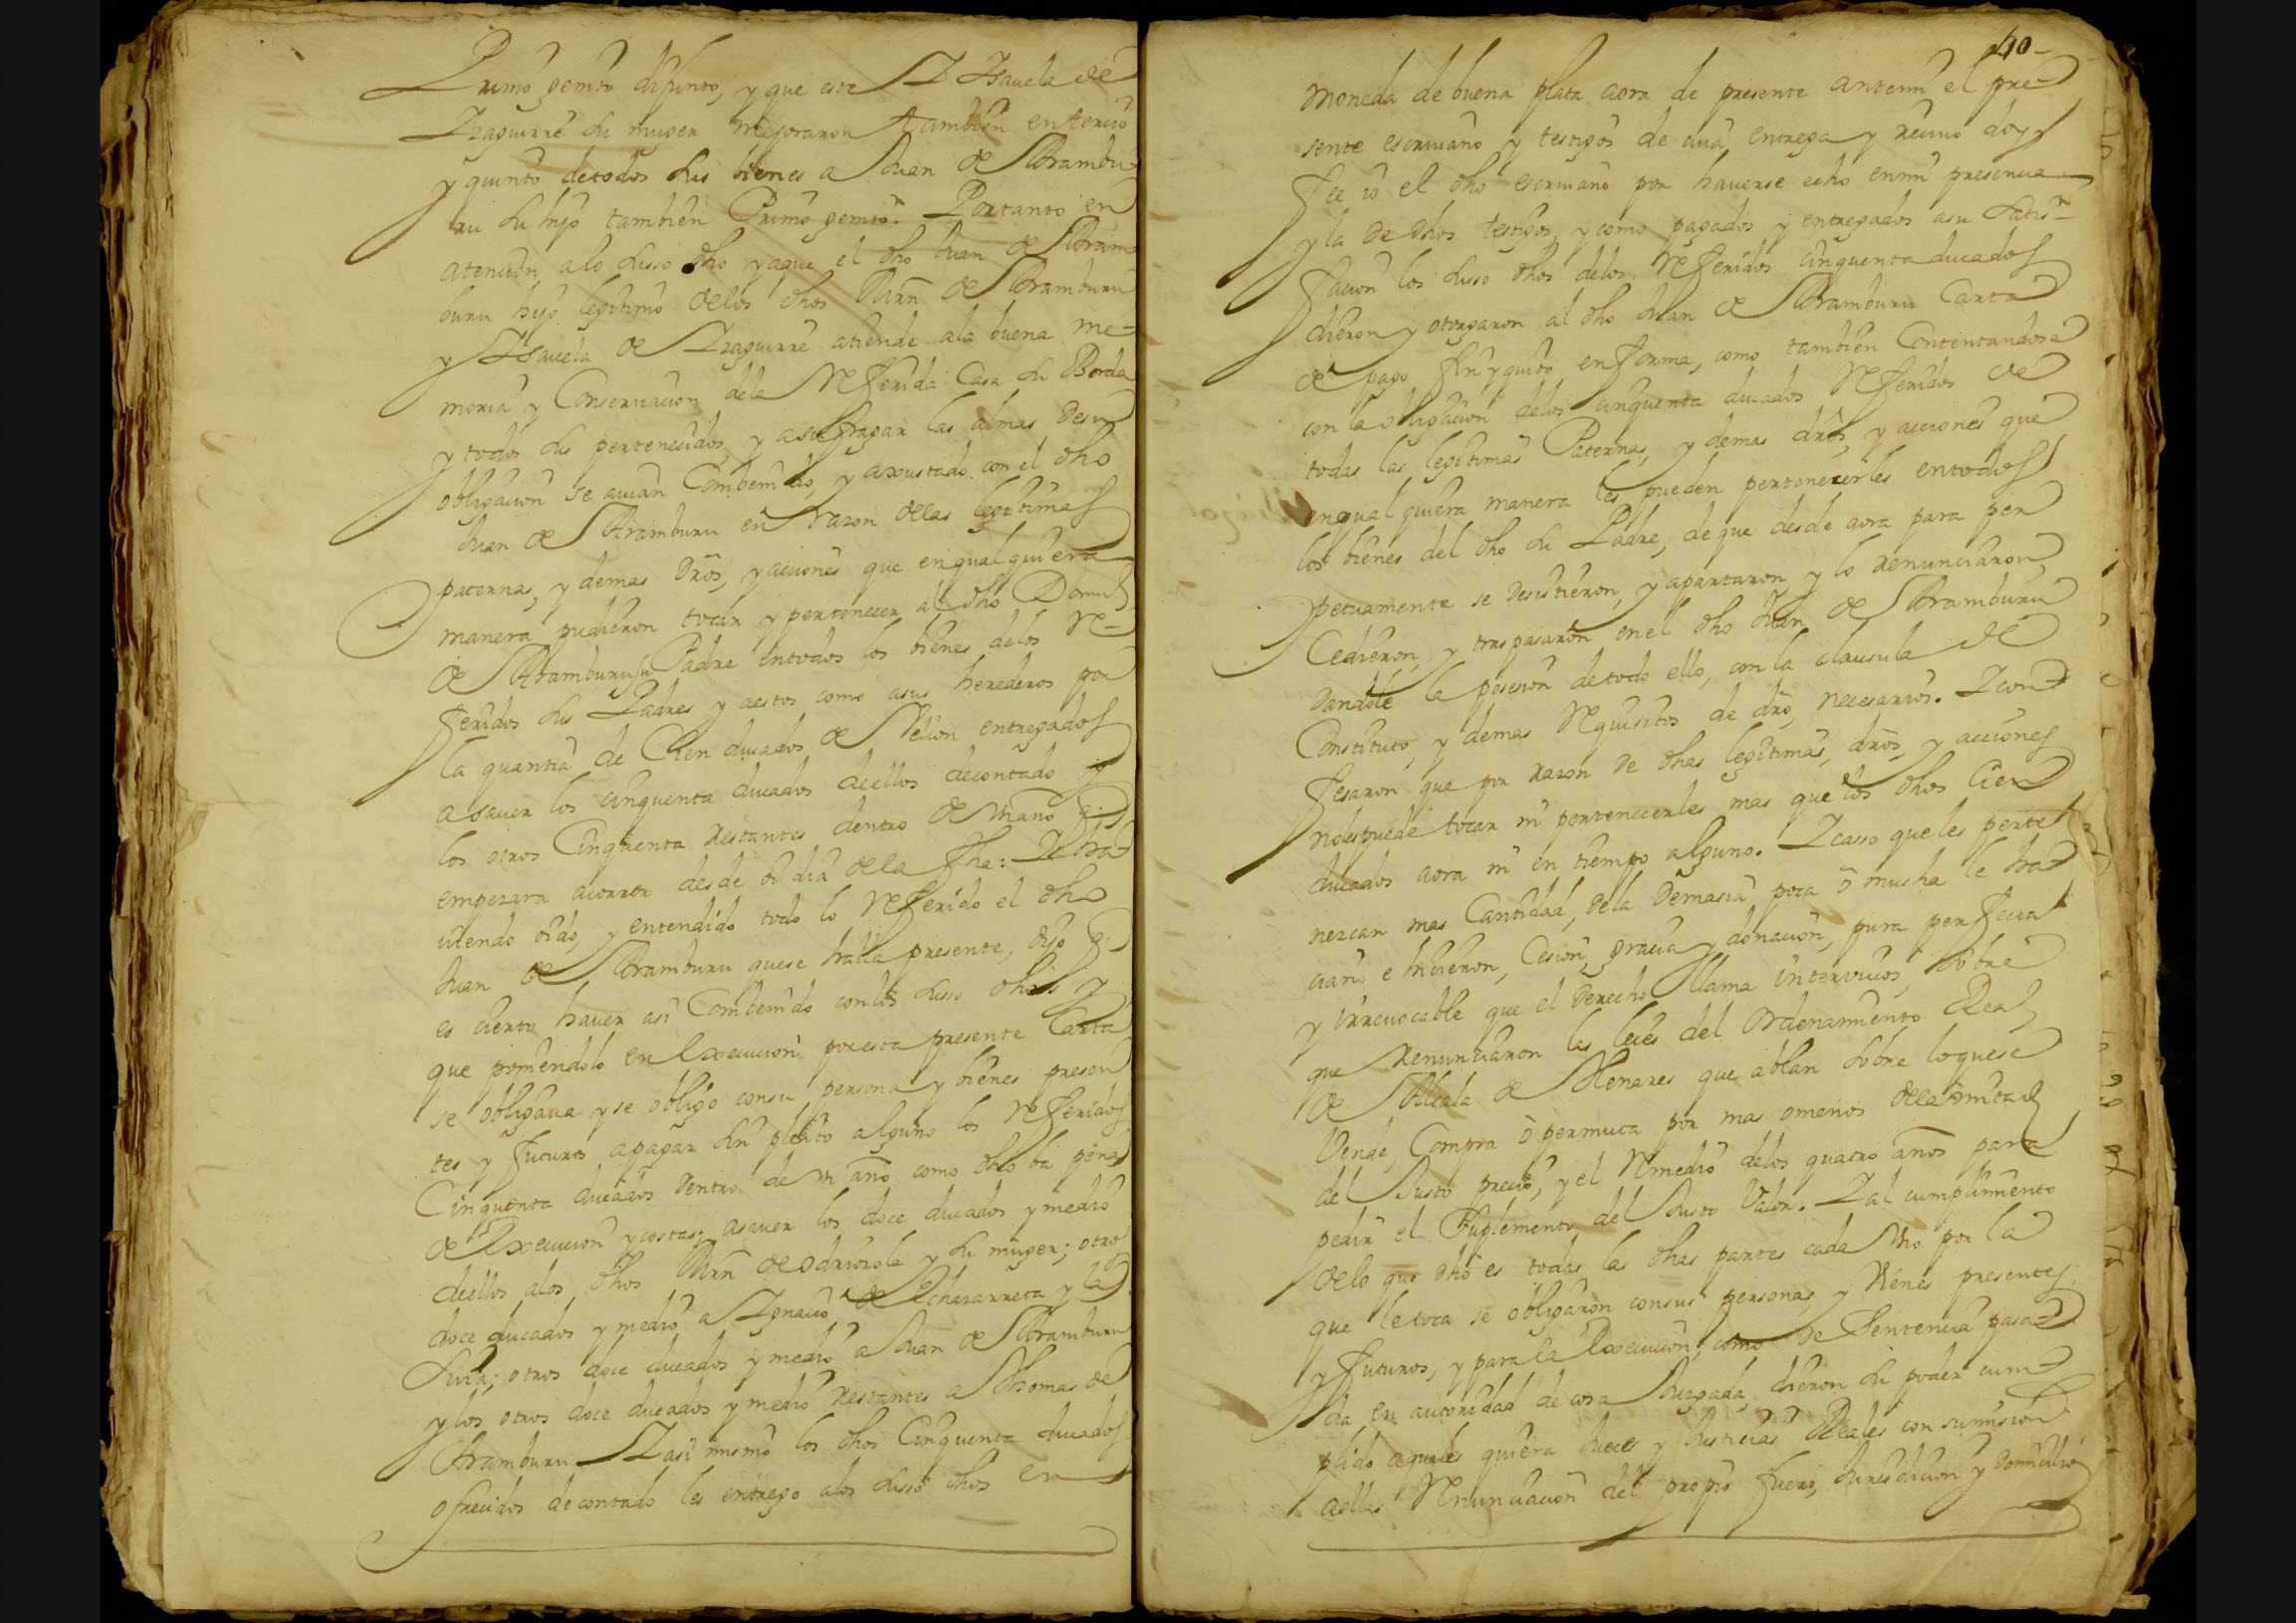 Primo genito difunto, y que este y Ysauela de
Yzaguirre su muger mejoraron tambien en tercio
y quinto de todos sus bienes a Juan de Arambu-
ru su hijo tambien Primo genito. Portanto en
atencion a lo susso dho y aque el dho Juan de Aram
buru hijo legitimo delos dhos Mrn de Aramburu
y Ysauela de Yzaguirre atiende ala buena me-
moria y Conseruacion dela Referida Casa su Borda
y todos sus pertenecidos, y a sufragar las almas desu
obligacion se auian Combenido, y axustado con el dho
Juan de Aramburu en razon delas legitimas
paternas, y demas dros, y acciones que en qual quiera
manera pudieron tocar y pertenecer al dho Domin
de Aramburu su Padre entodos los bienes delos Re-
feridos sus Padres y aestos como asus herederos por
la quantia de Cien ducados de Vellon entregados
asauer los cinquenta ducados dellos decontado y
los otros Cinquenta restantes dentro de un año q
empezara acorrer desde oi dia dela fha: Y ha
uiendo oido, y entendido todo lo Referido el dho
Juan de Aramburu quese halla presente, dijo q
es cierto hauer asi Combenido conlos susso dhos y
que poniendolo en Execucion por esta presente Carta
se obligaua y se obligo consu persona y bienes presen
tes y futuros apagar sin pleito alguno los Referidos
Cinquenta ducados dentro de un año como dho es pena
de Execucion y costas, asauer los doce ducados y medio
dellos alos dhos Mrn de Odriozola y su muger; otros
doce ducados y medio a Ygnacio de Echazarreta y la
suia; otros doce ducados y medio a Juan de Aramburu
y los otros doce ducados y medio restantes a Thomas de
Aramburu. Y asi mismo los dhos Cinquenta ducados
ofrecidos de contado les entrego alos susso dhos en
40-
moneda de buena plata aora de presente antemi el pre
sente escriuano y testigos de cuia entrega y reciuo doy
fee io el dho escriuano por hauerse echo enmi presencia
y la de dhos testigos, y como pagados y entregados asu satis-
facion los susso dhos delos Referidos cinquenta ducados
dieron y otorgaron al dho Juan de Aramburu Carta
de pago fin y quito en forma, como tambien Contentandose
con la obligacion delos cinquenta ducados Referidos de
todas las legitimas Paternas, y demas dros, y acciones que
enqual quiera manera les pueden pertenecerles entodos
los bienes del dho su Padre, de que desde aora para per
petuamente se desistieron, y apartaron y lo renunciaron,
Cedieron, y traspasaron en el dho Juan de Aramburu
dandole la posesion detodo ello, con la clausula de
Constituto, y demas Requisitos de dro, necesarios. Y con
fesaron que por razon de dhas legitimas, dros, y acciones
noles puede tocar ni pertenecerles mas que los dhos Cien
ducados aora ni en tiempo alguno. Y casso que les perte
nezcan mas Cantidad, dela Demasia poca ó mucha le ha
cian e hicieron, Cesion, gracia y donacion, pura perfecta
y irreuocable que el derecho llama interviuos, sobre
que Renunciaron las leies del Ordenamiento Real
de Alcala de Henares que ablan sobre loquese
Vende, Compra ó permuta por mas omenos dela mitad
del Justo precio, y el Remedio delos quatro años para
pedir el Suplemento del Justo Valor. Y al cumplimiento
delo que dho es todas las dhas partes cada Uno por la
que le toca se obligaron consus personas, y Vienes presentes
y futuros, y para la Execucion, como de Sentencia pasa
da en autoridad de cosa Juzgada, dieron su poder cum
plido aquales quiera Jueces y Justicias Reales con sumision
aellas Renunciacion del propio fuero, Jurisdicion y Domicilio